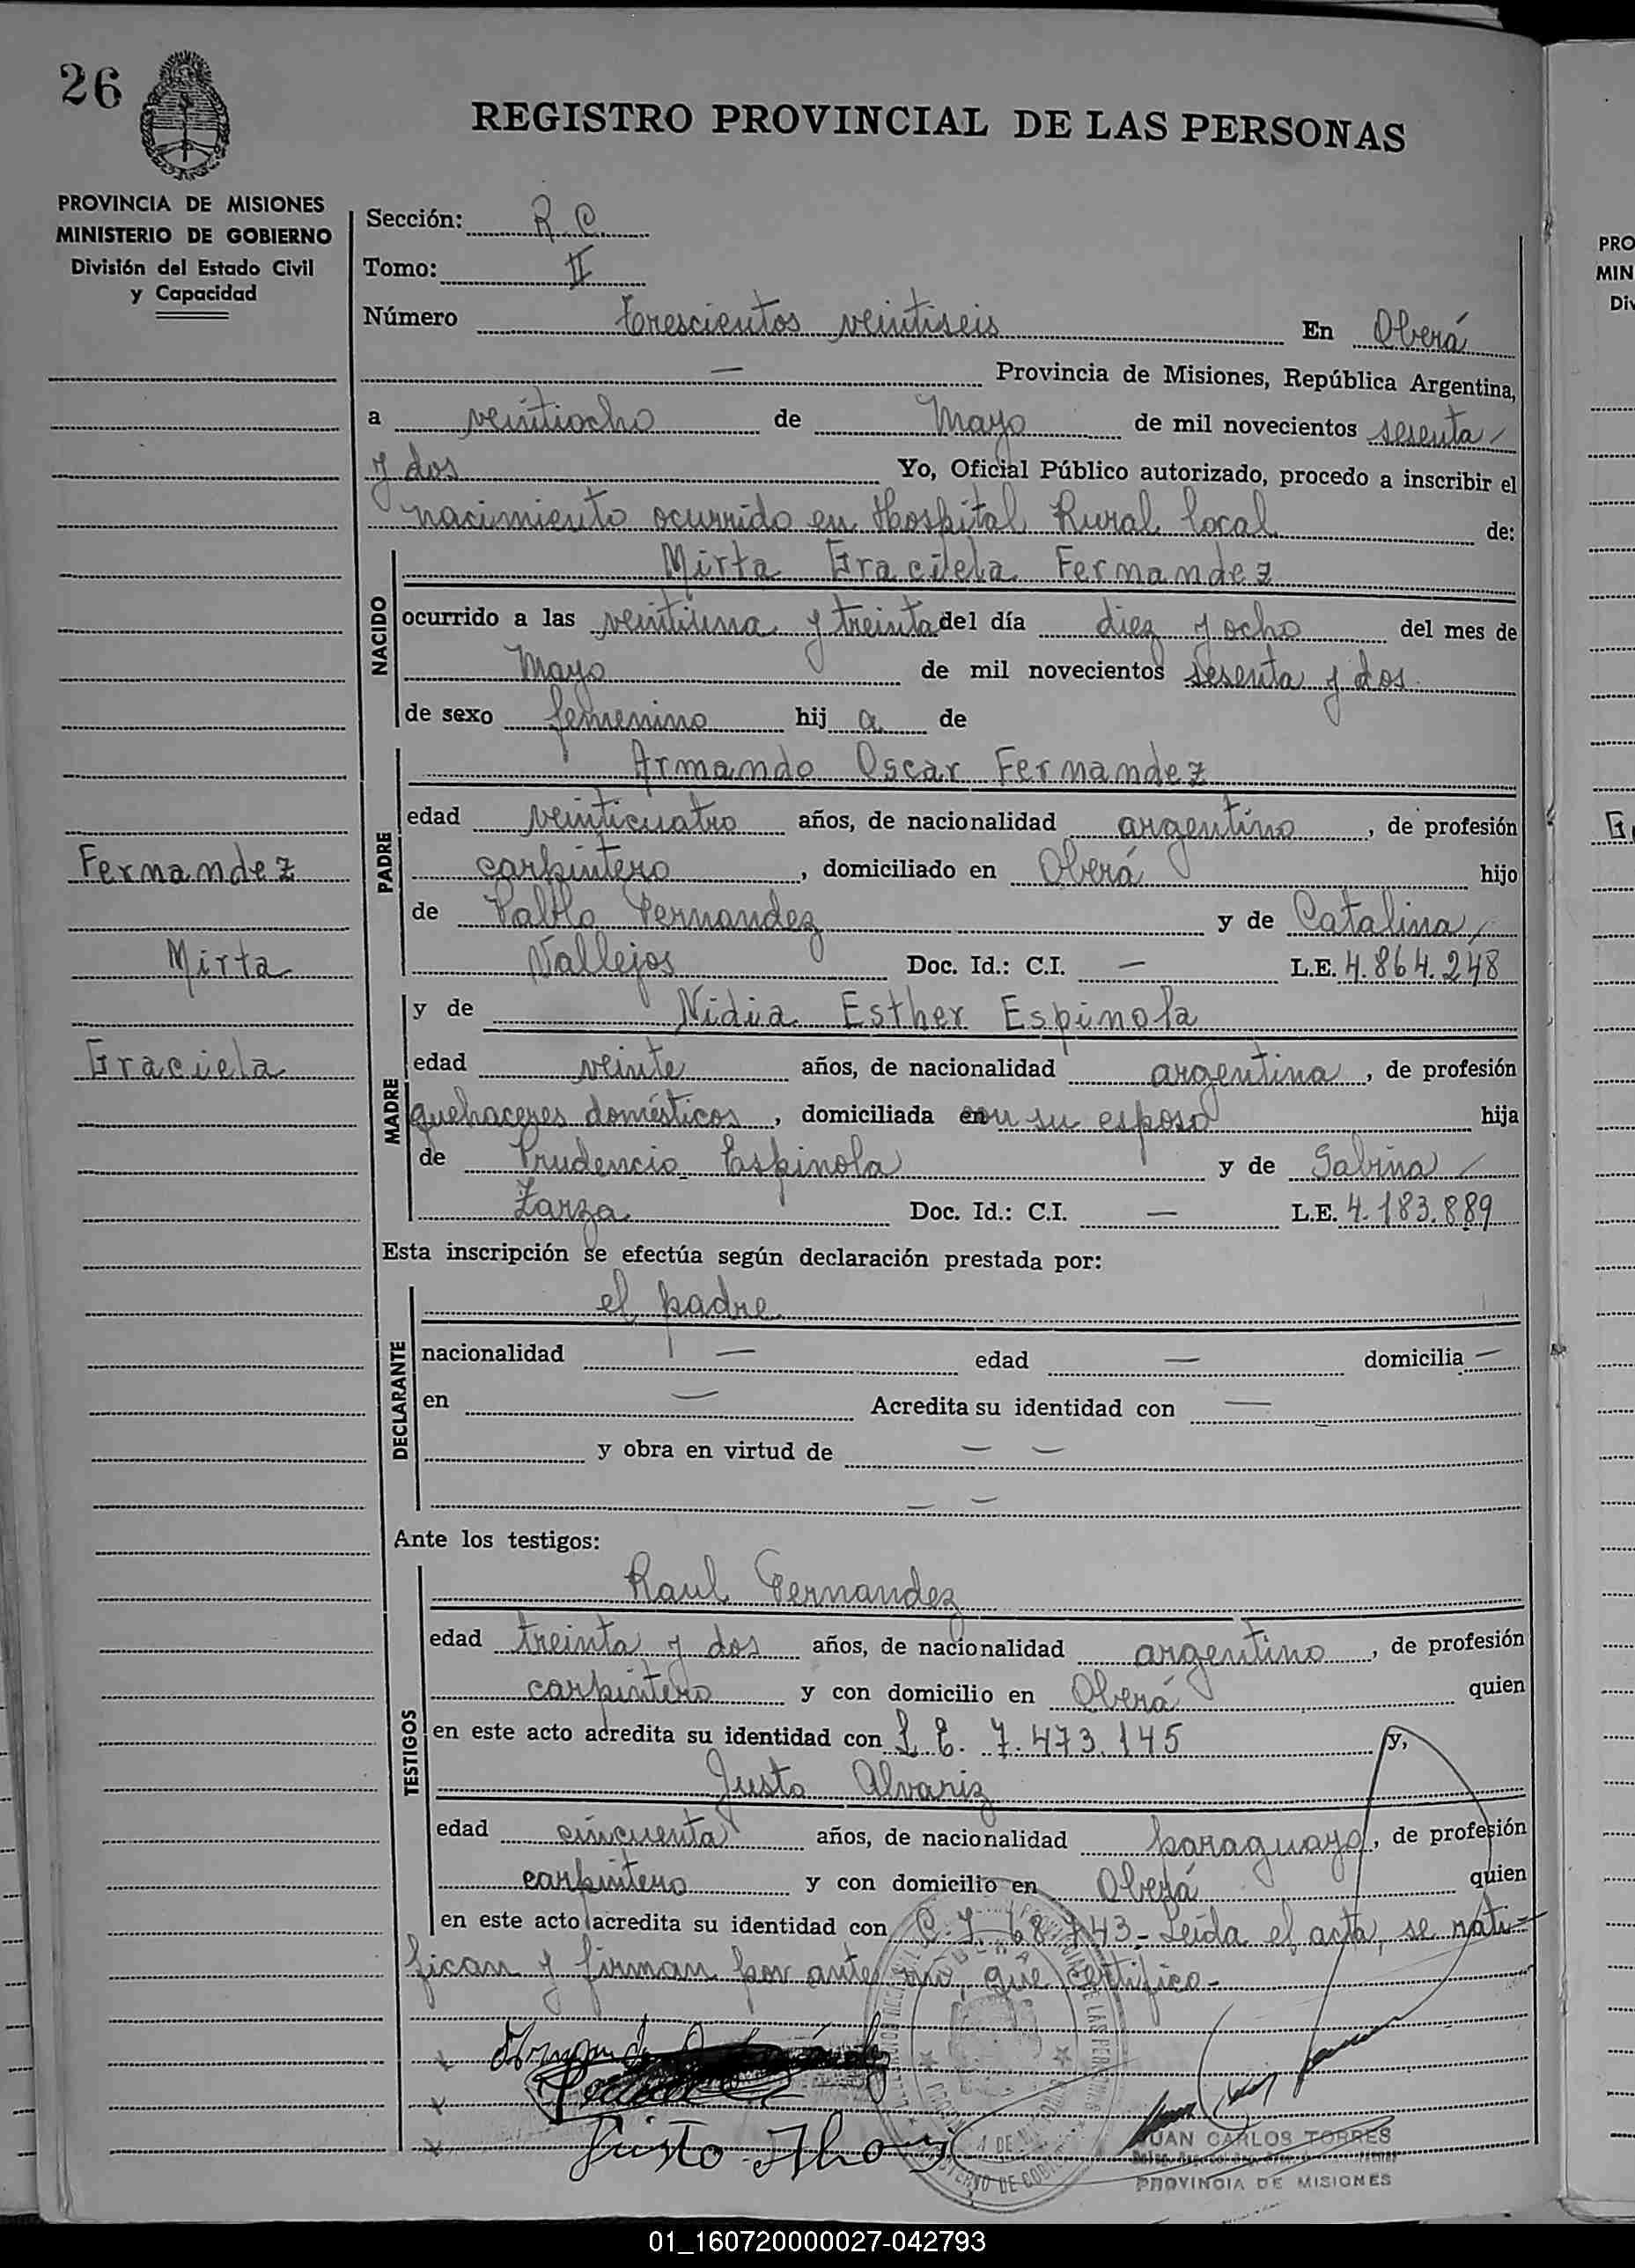 26
REGISTRO PROVINCIAL DE LAS PERSONAS
PROVINCIA DE MISIONES
MINISTERIO DE GOBIERNO
División del Estado Civil
y Capacidad
Sección: R C.
Tomo: II
Número trescientos veintiseis En Oberá
— Provincia de Misiones, República Argentina,
a veintiocho de Mayo de mil novecientos sesenta
y dos Yo, Oficial Público autorizado, procedo a inscribir el
nacimiento ocurrido en Hospital Rural local de:
NACIDO
Mirta Graciela Fernandez
ocurrido a las veintiuna y treinta del día diez y ocho del mes de
Mayo de mil novecientos sesenta y dos
de sexo femenino hij a de
PADRE
Armando Oscar Fernandez
edad veinticuatro años, de nacionalidad argentino, de profesión
carpintero, domiciliado en Oberá hijo
de Pablo Fernandez y de Catalina
Vallejos Doc. Id.: C.I. — L.E. 4.864.248
Fernandez
Mirta
Graciela
MADRE
y de Nidia Esther Espinola
edad veinte años, de nacionalidad argentina, de profesión
quehaceres domésticos, domiciliada en con su esposo hija
de Prudencio Espinola y de Sabina
Zarza Doc. Id.: C.I. — L.E. 4.183.889
Esta inscripción se efectúa según declaración prestada por:
DECLARANTE
el padre
nacionalidad — edad — domicilia —
en — Acredita su identidad con —
y obra en virtud de — —
— —
Ante los testigos:
TESTIGOS
Raul Fernandez
edad treinta y dos años, de nacionalidad argentino, de profesión
carpintero y con domicilio en Oberá quien
en este acto acredita su identidad con L. E. 7.473.145 y,
Justo Alvariz
edad cincuenta años, de nacionalidad paraguayo, de profesión
carpintero y con domicilio en Oberá quien
en este acto acredita su identidad con C. I. 68.743.- Leída el acta, se rati-
fican y firman por ante mi, que certifico.-
Justo
JUAN CARLOS TORRES
PROVINCIA DE MISIONES
PRO
MIN
Div
01_160720000027-042793